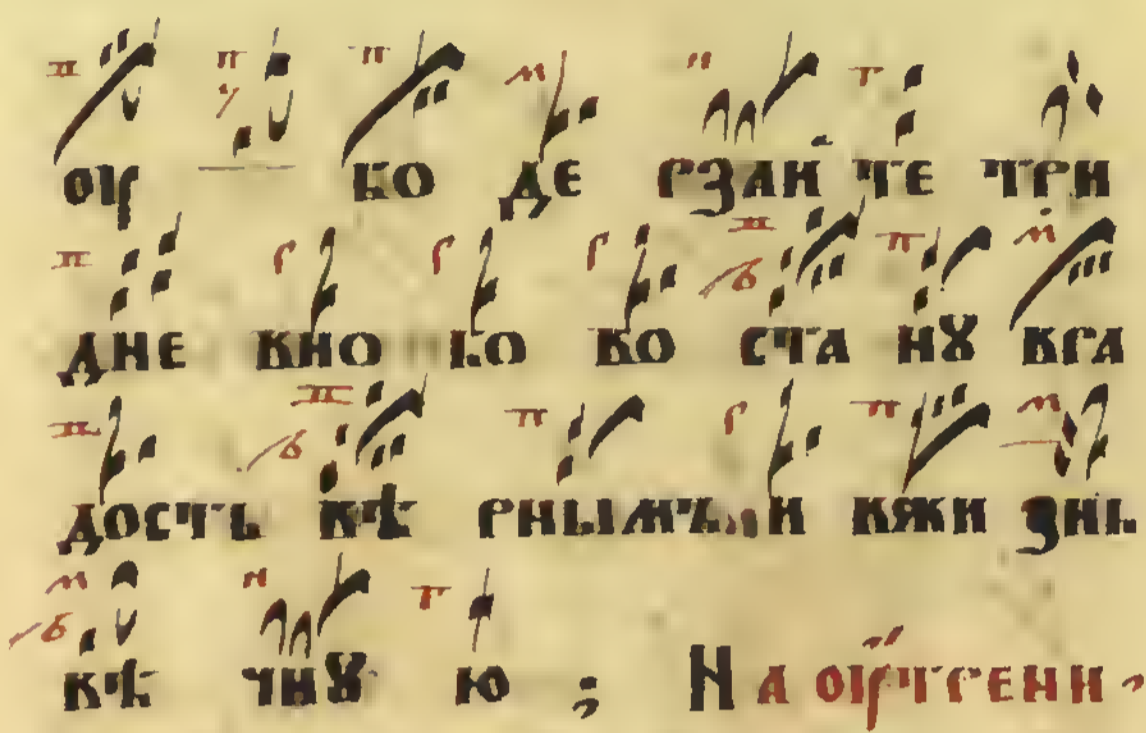 оу во де рзай те три
дне вно во во ста ну вра
дость вѣ рнымъ и вжи знь
вѣ чнꙋ ю ;  На оутрени